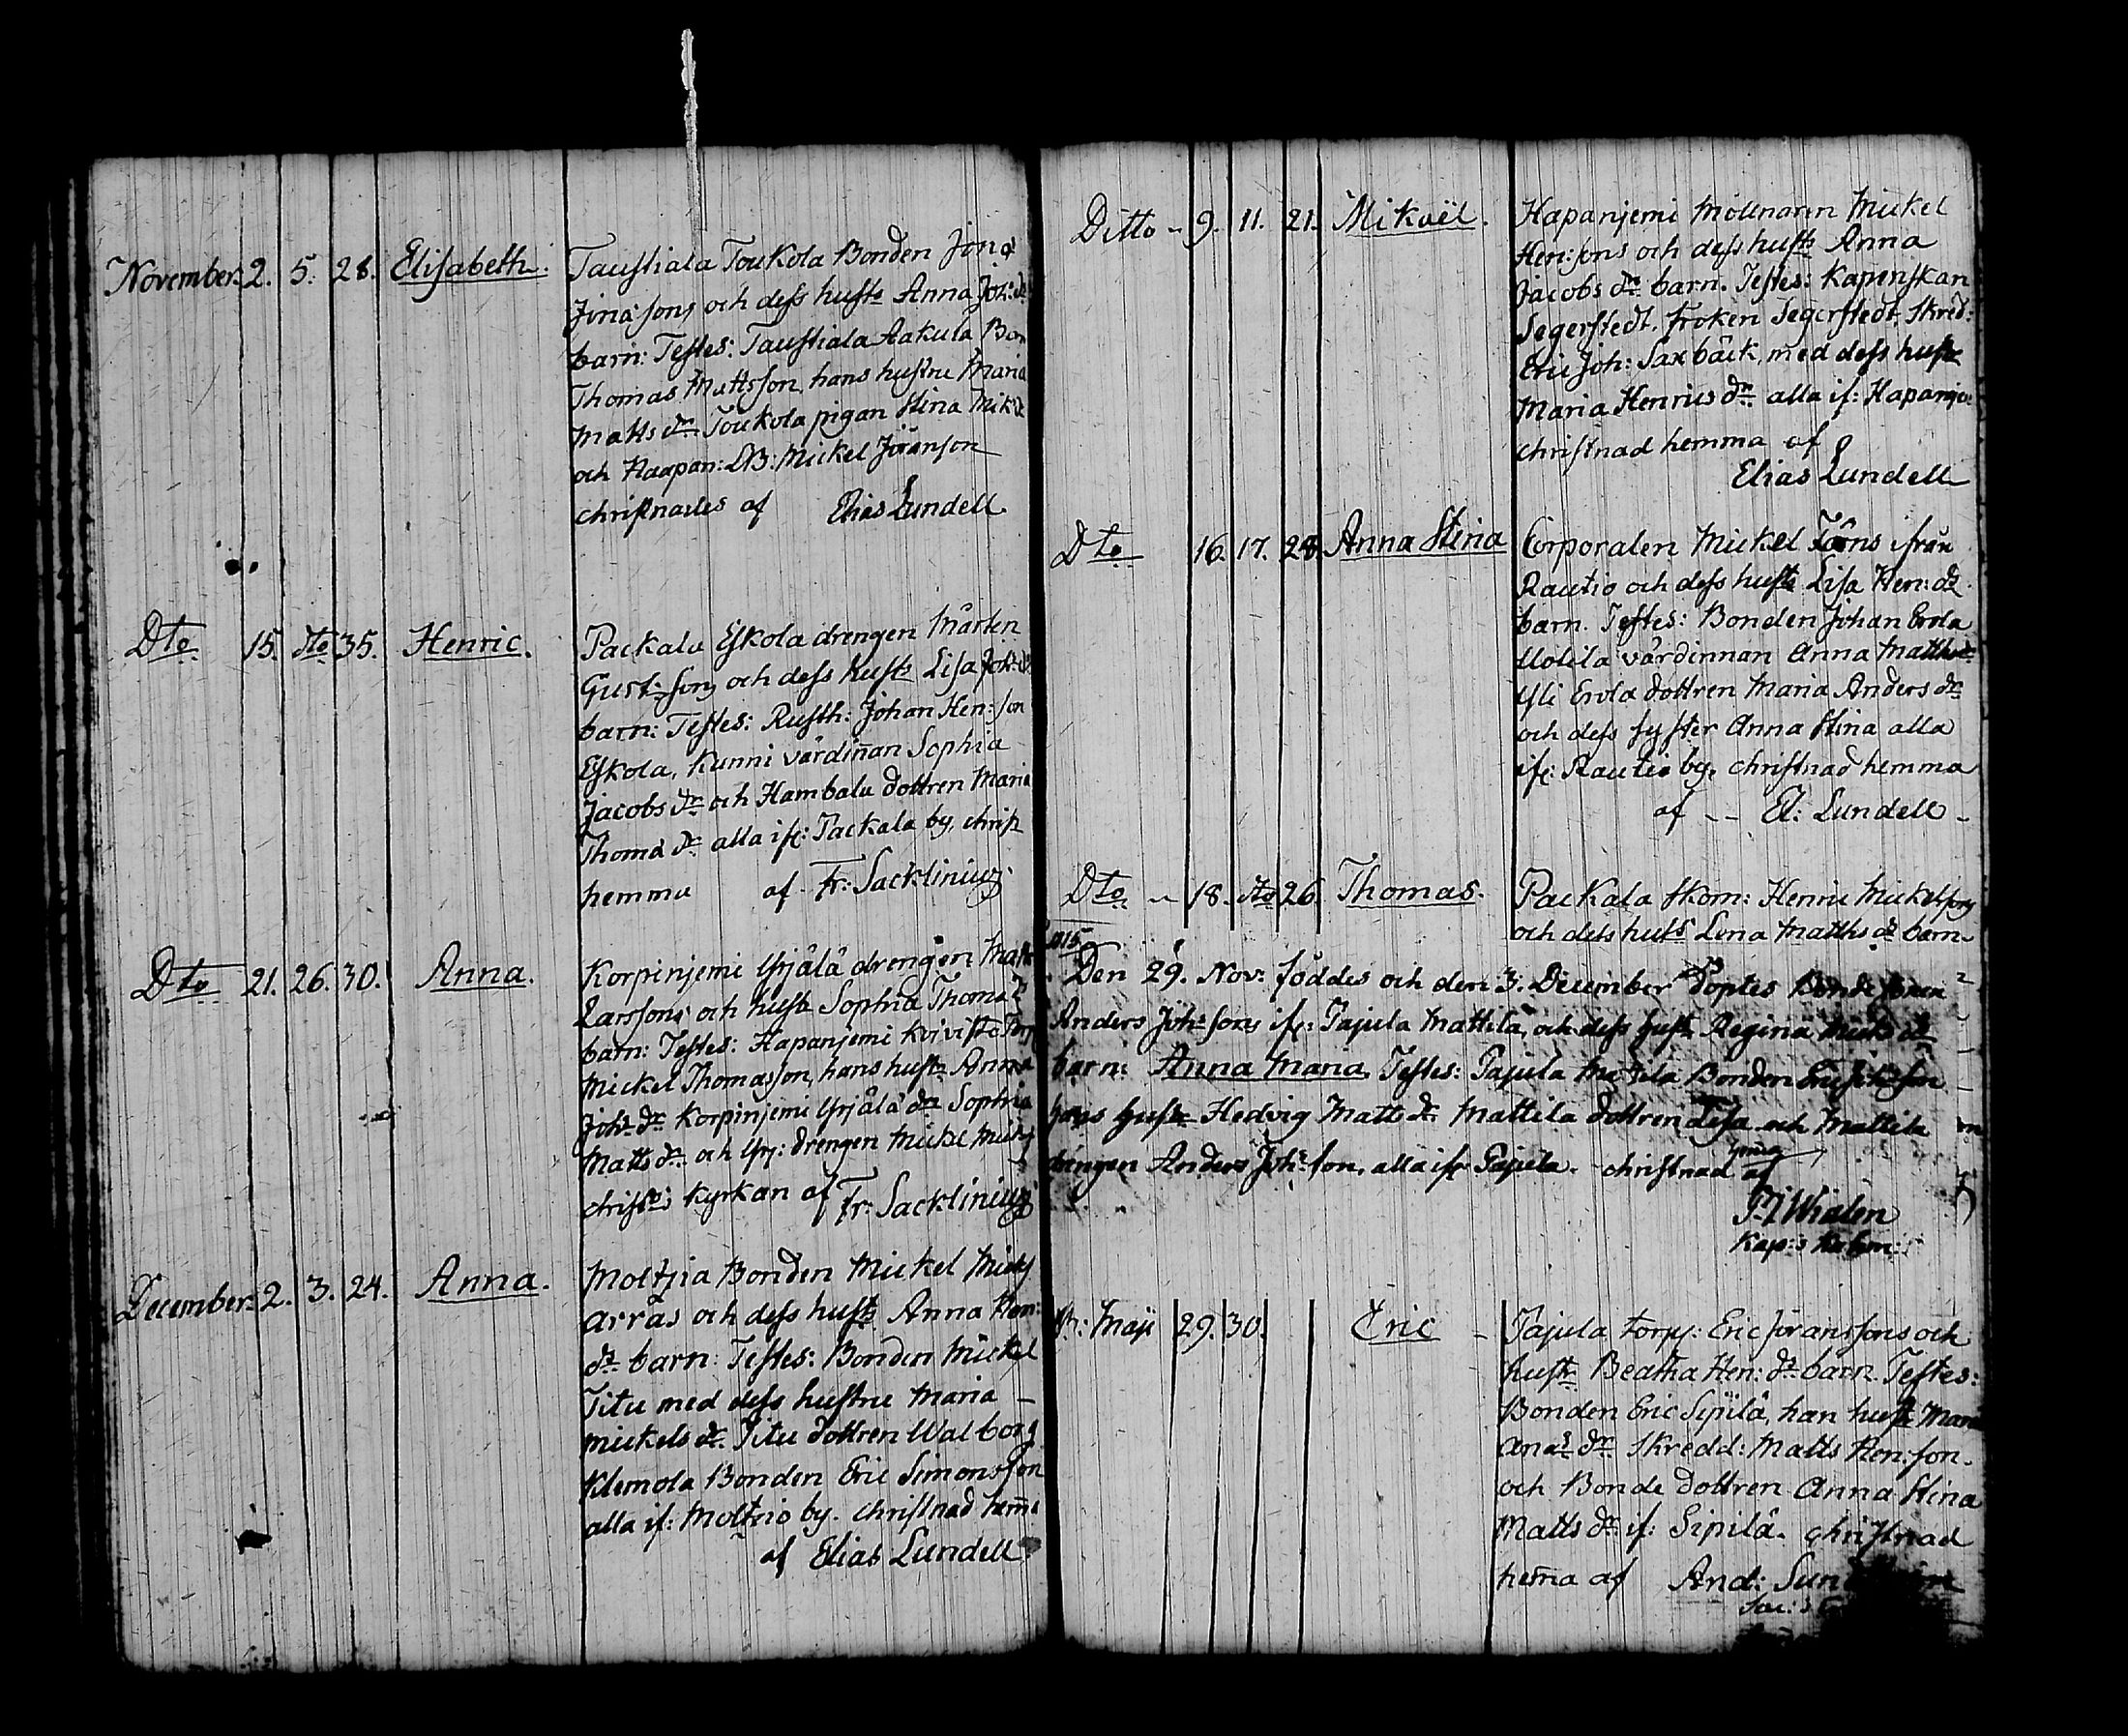 November. 2. 5. 28. Elisabeth. Taustiala Toukola Bonden Jöns
Jöns sons och dess hust: Anna Joh: dr
barn: Testes: Taustiala Aakula Bon
Thomas Mattsson, hans hustru Maria
Matts dr. Toukola pigan Stina Mik: dr
och Haapan: LB: Mickel Jöranson
christnades af Elias Lundell.
Dto 15. dto 35. Henric. Packala Eskola drengen Mårten
Gust: sons och dess hust: Lisa Joh: dr
barn: Testes: Rusth: Johan Hen: son
Eskola, Kunni värdinnan Sophia
Jacobs dr och Hambala dottren Maria
Thoms dr alla ifr: Packala by, christ
hemma af Fr: Sacklinius
Dto 21. 26. 30. Anna. Korpinjemi Yrjälä drengen Matts
Larssons och hust: Sophia Thoms dr
barn: Testes: Hapanjemi Kivistö Torp
Mickel Thomasson, hans hust: Anna
Joh: dr Korpinjemi Yrjälä dr Sophia
Matts dr. och Yrj: drengen Mickel Micks
christ: i Kyrkan af Fr: Sacklinius
December. 2. 3. 24. Anna. Moltzia Bonden Mickel Micks
Arras och dess hust: Anna Hen:
dr barn: Testes: Bonden Mickel
Titu med dess hustru Maria
Mickels dr. Titu dottren Walborg
Klemola Bonden Eric Simonsson
alla if: Moltzio by. christnad hem̄a
af Elias Lundell
Ditto 9. 11. 21. Mikaël. Hapanjemi Möllnarn Mickel
Hen: sons och dess hust: Anna
Jacobs dr barn. Testes: Kapenskan
Segerstedt. Fröken Segerstedt, Skred:
Eric Joh: Saxbäck, med dess hust:
Maria Henrics dr alla if: Hapanjem
christnad hemma af
Elias Lundell
Dto 16. 17. 28. Anna Stina Corporalen Mickel ifrån
Rautio och dess hust: Lisa Hen: dr
barn. Testes: Bonden Johan Erola
värdinnan Anna Matths dr
Yli Erola dottren Maria Anders dr
och dess syster Anna Stina alla
ifr: Rautio by, christnad hemma
af -- El: Lundell
Dto 18. dto 26. Thomas. Packala Skom: Henric Mickelsons
och dess hust: Lena Matths dr barn
1815
Den 29. Nov: föddes och den 3. December döptes Bonde sonen
Anders Joh: sons ifr: Pajula Mattila, och dess hust: Regina Micks dr
barn: Anna Maria. Testes: Pajula Mattila Bonden Eric Joh: son
hans hust: Hedvig Matts dr Mattila dottren Lisa och Mattila
drengen Anders Joh: son, alla ifr Pajula. christnad af
Kap:
Maji 29. 30. Eric Pajula torp: Eric Joranssons och
hust: Beatha Hen: dr barn. Testes:
Bonden Eric Sipilä, han hust: Maria
And: dr Skredd: Matts Hen: son
och Bonde dottren Anna Stina
Matts dr if: Sipilä. christnad
hem̄a af And: